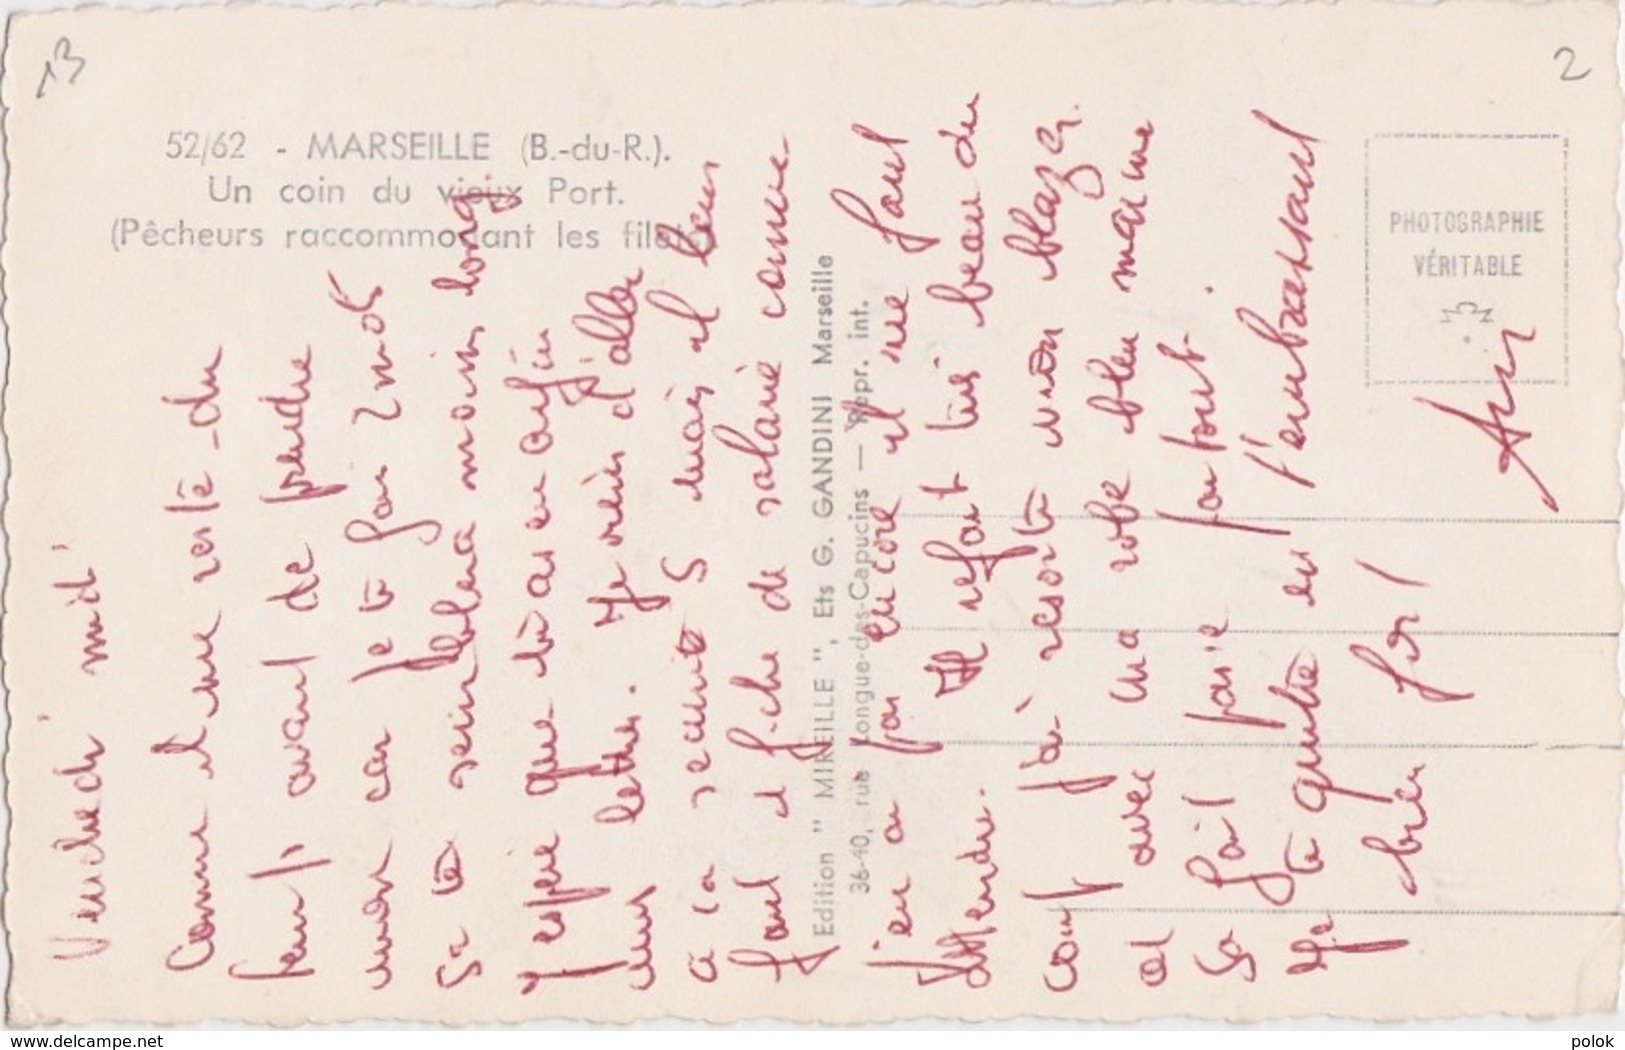 13
2
52/62 - MARSEILLE (B.-du-R.).
Un coin du vieux Port.
(Pêcheurs raccommodant les filets)
PHOTOGRAPHIE
VÉRITABLE
Edition " MIREILLE ", Ets G. GANDINI Marseille
36-40, rue Longue-des-Capucins — Repr. int.
Vendredi midi
Comme il me reste du
temps avant de prendre
mon car je te fais 2 mots
Sa te semblera moins long
J'espère que tu as eu enfin
une lettre. Je viens d'aller
a la sécurité S mais il leur
faut 1 fiche de salaire comme
j'en ai pas encore il me faut
attendre. Il refait très beau du
coup j'ai ressorti mon blazer
et avec ma robe bleu marine
Sa fait partout.
Je te quitte en t'embrassant
bien fort
www.delcampe.net
polok